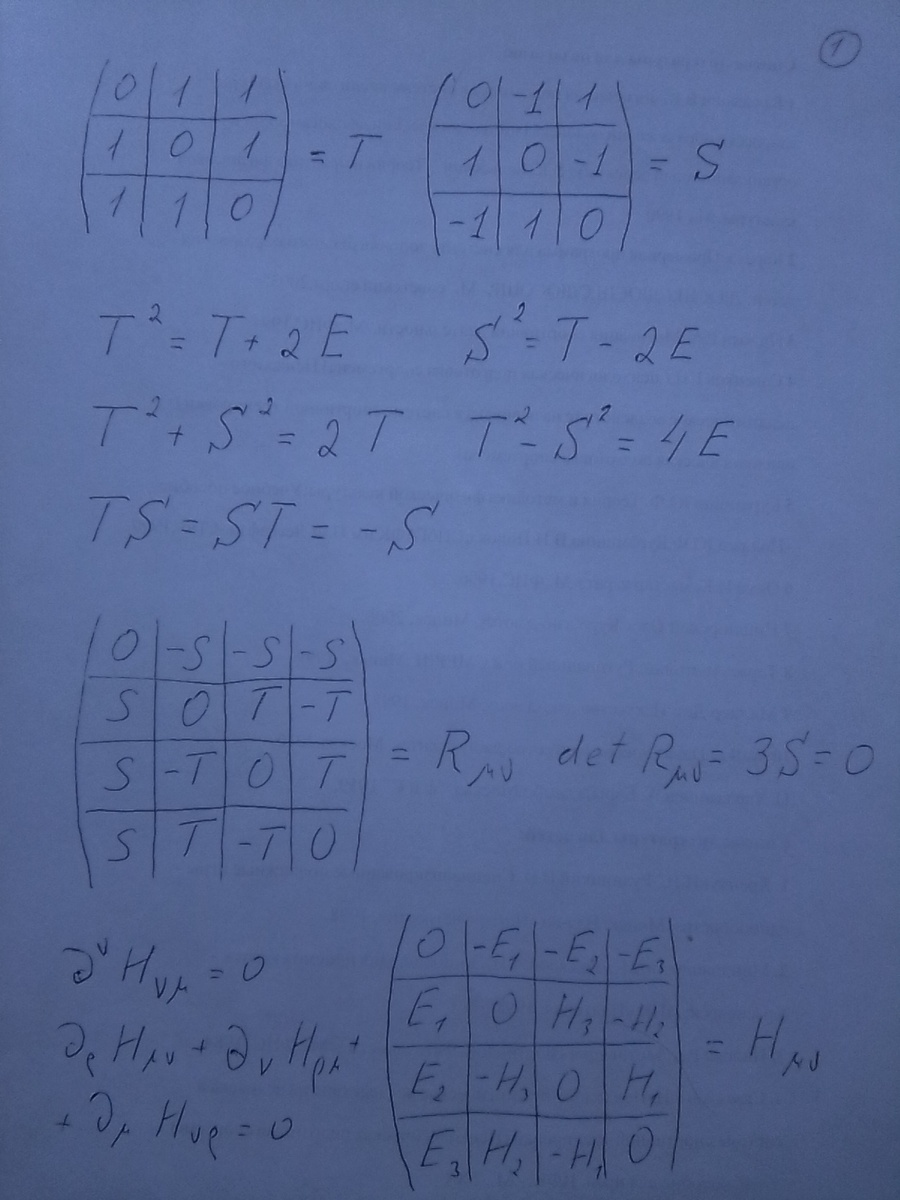 1
0 1 1
1 0 1 = T
1 1 0
0 -1 1
1 0 -1 = S
-1 1 0
T² = T + 2E S² = T - 2E
T² + S² = 2T T² - S² = 4E
TS = ST = -S
0 -S -S -S
S 0 T -T
S -T 0 T = Rμν det Rμν = 3S = 0
S T -T 0
∂^ν Hνμ = 0
∂ρ Hμν + ∂ν Hρμ +
+ ∂μ Hνρ = 0
0 -E₁ -E₂ -E₃
E₁ 0 H₃ -H₂
E₂ -H₃ 0 H₁ = Hμν
E₃ H₂ -H₁ 0